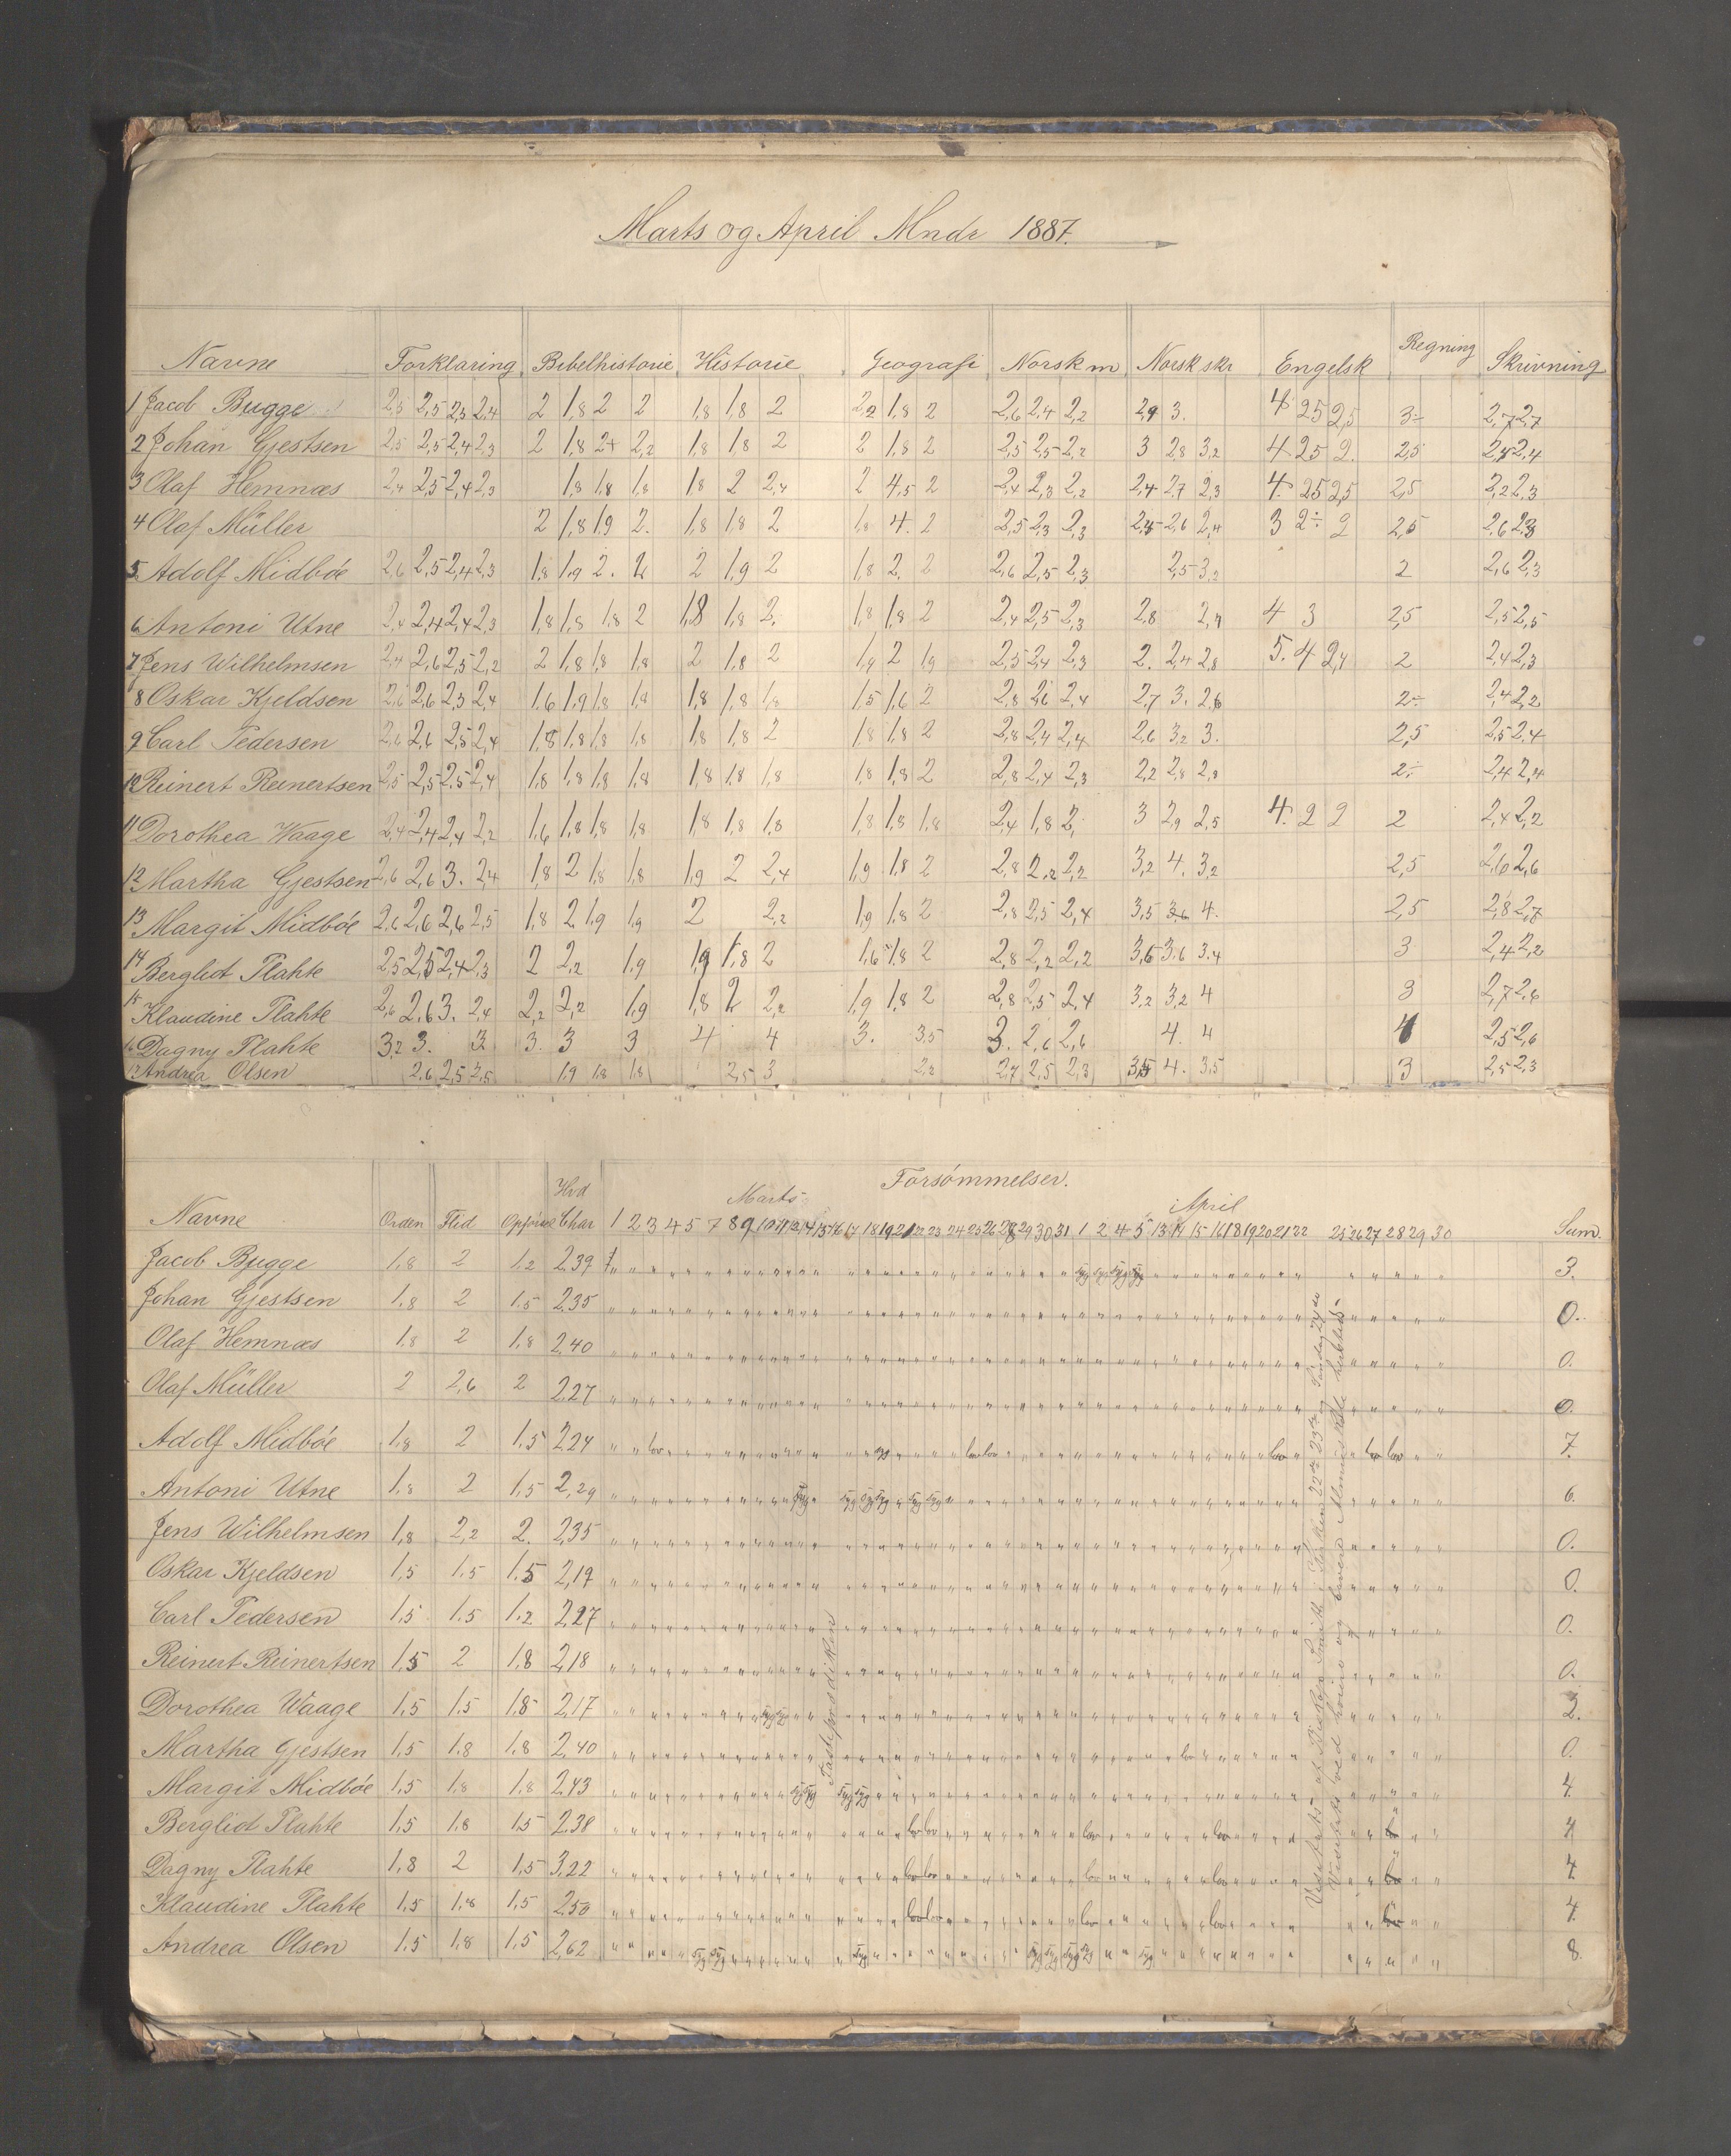 Marts og April Mndr 1887.
Navne Forklaring Bibelhistorie Historie Geografi Norsk m Norsk skr Engelsk Regning Skrivning
1 Jacob Bugge 2,5 2,5 2,3 2,4 2 1,8 2 2 1,8 1,8 2 2,2 1,8 2 2,6 2,4 2,2 2,9 3. 4 25 2,5 3÷ 2,7 2,7
2 Johan Gjestsen 2,5 2,5 2,4 2,3 2 1,8 2+ 2,2 1,8 1,8 2 2 1,8 2 2,5 2,5 2,2 3 2,8 3,2 4 25 2. 2,5 2,4
3 Olaf Hemnæs 2,4 2,5 2,4 2,3 1,8 1,8 1,8 1,8 2 2,4 2 4,5 2 2,4 2,3 2,2 2,4 2,7 2,3 4. 25 2,5 2,5 2,2 2,3
4 Olaf Müller 2 1,8 1,9 2. 1,8 1,8 2 1,8 4. 2 2,5 2,3 2,3 2,6 2,4 3 2÷ 2 2,5 2,6 2,3
5 Adolf Midböe 2,6 2,5 2,4 2,3 1,8 1,9 2. 2 2 1,9 2 1,8 2. 2 2,6 2,5 2,3 2,5 3,2 2 2,6 2,3
6 Antoni Utne 2,4 2,4 2,4 2,3 1,8 1,8 1,8 2 1,8 1,8 2. 1,8 1,8 2 2,4 2,5 2,3 2,8 4 3 2,5 2,5 2,5
7 Jens Wilhelmsen 2,4 2,6 2,5 2,2 2 1,8 1,8 1,8 2 1,8 2 1,9 2 1,9 2,5 2,4 2,3 2. 2,4 2,8 5. 4 2,4 2 2,4 2,3
8 Oskar Kjeldsen 2,6 2,6 2,3 2,4 1,6 1,9 1,8 1,8 1,8 1,8 1,8 1,5 1,6 2 2,8 2,6 2,4 2,7 3. 2,6 2÷ 2,4 2,2
9 Carl Pedersen 2,6 2,6 2,5 2,4 1,8 1,8 1,8 1,8 1,8 1,8 2 1,8 1,8 2 2,8 2,4 2,4 2,6 3,2 3. 2,5 2,5 2,4
10 Reinert Reinertsen 2,5 2,5 2,5 2,4 1,8 1,8 1,8 1,8 1,8 1,8 1,8 1,8 1,8 2 2,8 2,4 2,3 2,2 2,8 2,8 2÷ 2,4 2,4
11 Dorothea Waage 2,4 2,4 2,4 2,2 1,6 1,8 1,8 1,8 1,8 1,8 1,8 1,8 1,8 1,8 2,4 1,8 2, 3 2,9 2,5 4. 2 2 2 2,4 2,2
12 Martha Gjestsen 2,6 2,6 3. 2,4 1,8 2 1,8 1,8 1,9 2 2,4 1,9 1,8 2 2,8 2,2 2,2 3,2 4. 3,2 2,5 2,6 2,6
13 Margit Midböe 2,6 2,6 2,6 2,5 1,8 2 1,9 1,9 2 2,2 1,9 1,8 2 2,8 2,5 2,4 3,5 3,6 4. 2,5 2,8 2,7
14 Berglid Plahte 2,5 2,5 2,4 2,3 2 2,2 1,9 1,9 1,8 2 1,6 1,8 2 2,8 2,2 2,2 3,6 3,6 3,4 3 2,4 2,2
15 Klaudine Plahte 2,6 2,6 3. 2,4 2,2 2,2 1,9 1,8 2 2,2 1,9 1,8 2 2,8 2,5 2,4 3,2 3,2 4 3 2,7 2,6
16 Dagny Plahte 3,2 3. 3 3. 3 3 4 4 3. 3,5 3. 2,6 2,6 4. 4 4 2,5 2,6
17 Andrea Olsen 2,6 2,5 2,5 1,9 1,8 1,8 2,5 3 2,2 2,7 2,5 2,3 3,5 4. 3,5 3 2,5 2,3
Forsömmelser.
Marts April
Navne Orden Flid Opförsel Hvd Char 1 2 3 4 5 7 8 9 10 11 12 14 15 16 17 18 19 21 22 23 24 25 26 28 29 30 31 1 2 4 5 13 14 15 16 18 19 20 21 22 25 26 27 28 29 30 Sum.
Jacob Bugge 1,8 2 1,2 2,39 syg syg syg syg 3.
Johan Gjestsen 1,8 2 1,5 2,35 0.
Olaf Hemnæs 1,8 2 1,8 2,40 0.
Olaf Müller 2 2,6 2 2,27 0.
Adolf Midböe 1,8 2 1,5 2,24 lov lov lov lov lov lov 7.
Antoni Utne 1,8 2 1,5 2,29 syg syg syg syg syg syg 6.
Jens Wilhelmsen 1,8 2,2 2. 2,35 0.
Oskar Kjeldsen 1,5 1,5 1,5 2,19 0.
Carl Pedersen 1,5 1,5 1,2 2,27 0.
Reinert Reinertsen 1,5 2 1,8 2,18 0.
Dorothea Waage 1,5 1,5 1,8 2,17 syg syg 2.
Martha Gjestsen 1,5 1,8 1,8 2,40 lov 0.
Margit Midböe 1,5 1,8 1,8 2,43 syg syg syg syg 4.
Berglid Plahte 1,5 1,8 1,5 2,38 lov lov lov lov lov 4.
Dagny Plahte 1,8 2 1,5 3,22 lov lov lov lov lov 4.
Klaudine Plahte 1,5 1,8 1,5 2,50 lov lov lov lov lov 4.
Andrea Olsen 1,5 1,8 1,5 2,62 syg syg syg syg syg syg syg syg 8.
Fasteprædiken
Visitats af Biskop Smitt i Kirken 22de 23de og Söndag 24de